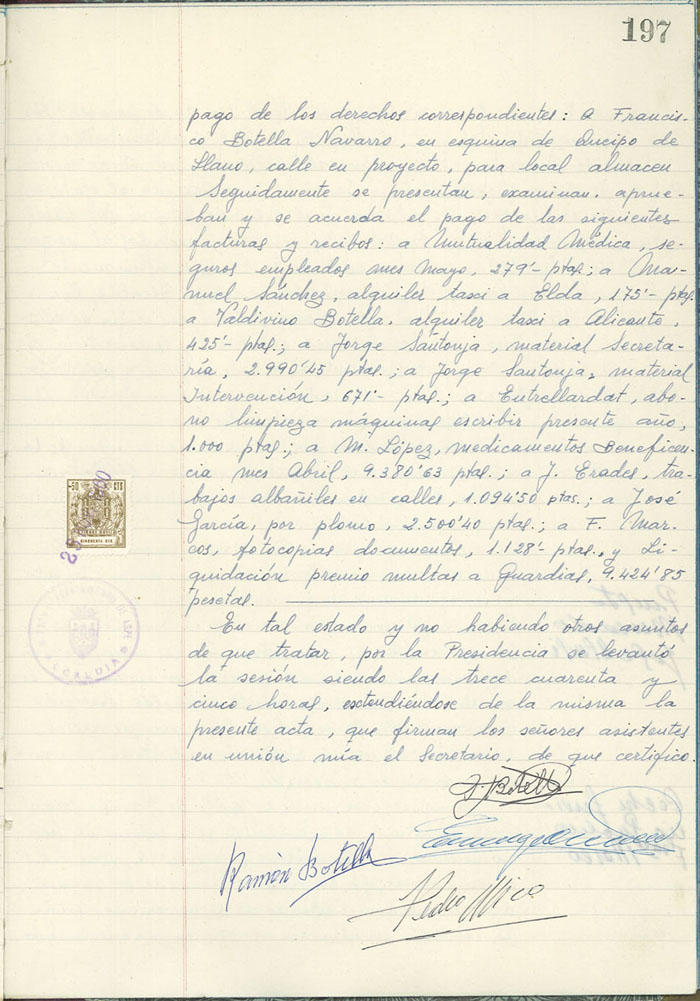 197
pago de los derechos correspondientes: a Francis-
co Botella Navarro, en esquina de Queipo de
Llano, calle en proyecto, para local almacen
Seguidamente se presentan, examinan, aprue-
ban y se acuerda el pago de las siguientes
facturas y recibos: a Mutualidad Médica, se-
guros empleados mes Mayo, 279'- ptas.; a Ma-
nuel Sánchez, alquiler taxi a Elda, 175'- ptas.
a Valdivino Botella, alquiler taxi a Alicante,
425'- ptas.; a Jorge Santonja, material Secreta-
ría, 2.990'45 ptas.; a Jorge Santonja, material
Intervención, 671'- ptas.; a Entrellardat, abo-
no limpieza máquinas escribir presente año,
1.000 ptas.; a M. López, medicamentos Beneficen-
cia mes Abril, 9.380'63 ptas.; a J. Erades, tra-
bajos albañiles en calles, 1.094'50 ptas.; a José
García, por plomo, 2.500'40 ptas.; a F. Mar-
cos, fotocopias documentos, 1.128'- ptas., y Li-
quidación premio multas a Guardias, 9.424'85
pesetas.
En tal estado y no habiendo otros asuntos
de que tratar, por la Presidencia se levantó
la sesión siendo las trece cuarenta y
cinco horas, extendiéndose de la misma la
presente acta, que firman los señores asistentes
en unión mía el Secretario, de que certifico.
50 CTS
CINCUENTA CTS
ALCALDIA
Botella
Ramón Botella
Pedro Mico